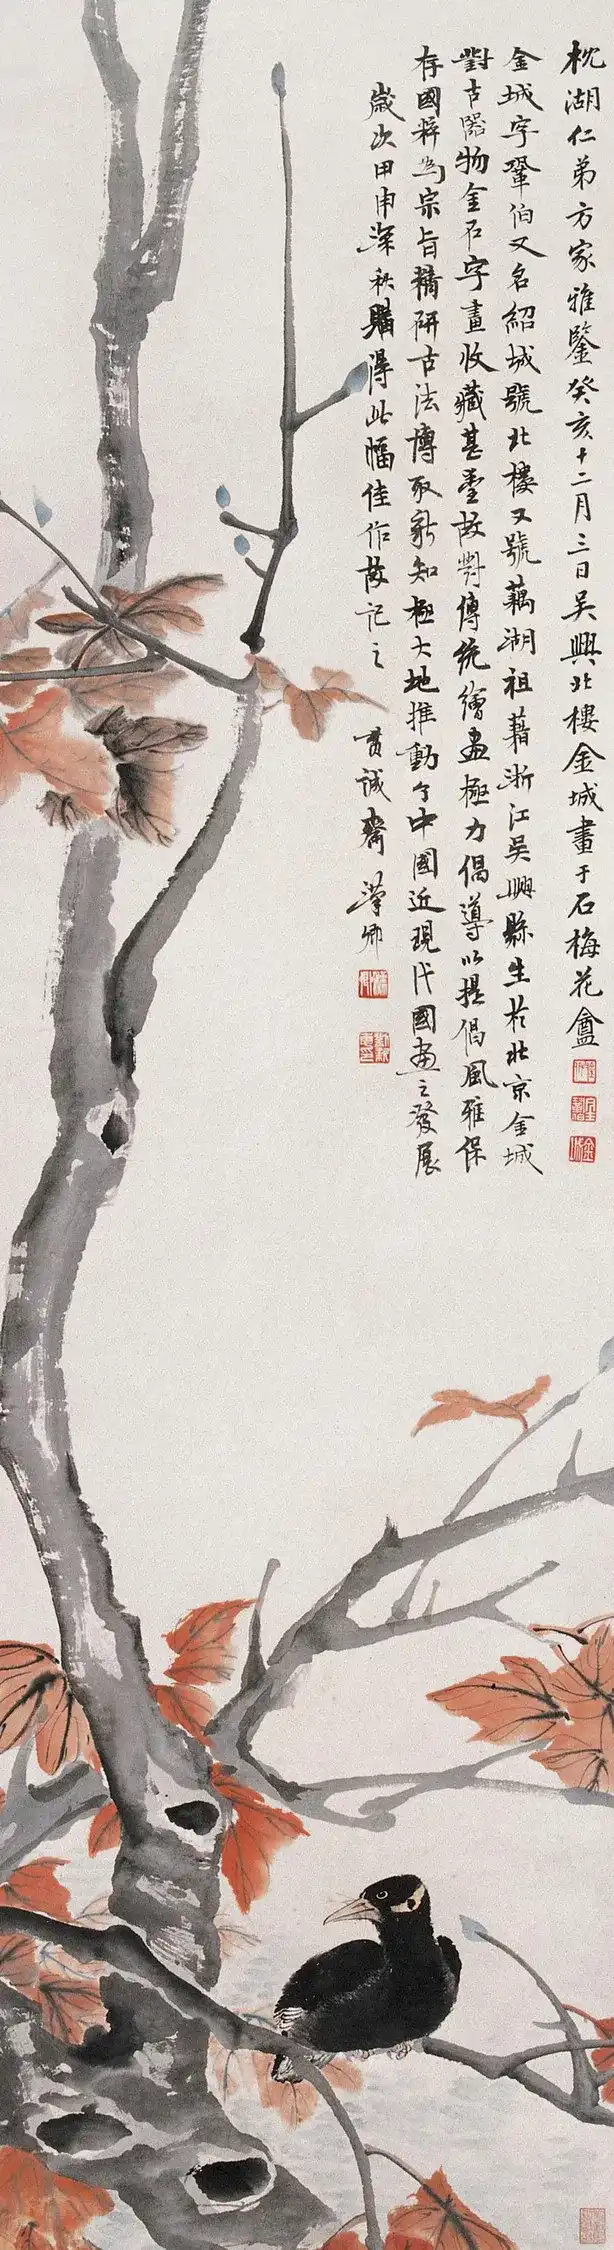 枕湖仁弟方家雅鑒癸亥十二月三日吳興北樓金城畫于石梅花盦
金城字鞏伯又名紹城號北樓又號藕湖祖藉浙江吳興縣生於北京金城
對古器物金石字畫收藏甚豐故對傳統繪畫極力倡導以提倡風雅保
存國粹為宗旨精研古法博取新知極大地推動了中國近現代國畫之發展
歲次甲申深秋購得此幅佳作故記之
貫誠齋 漢卿